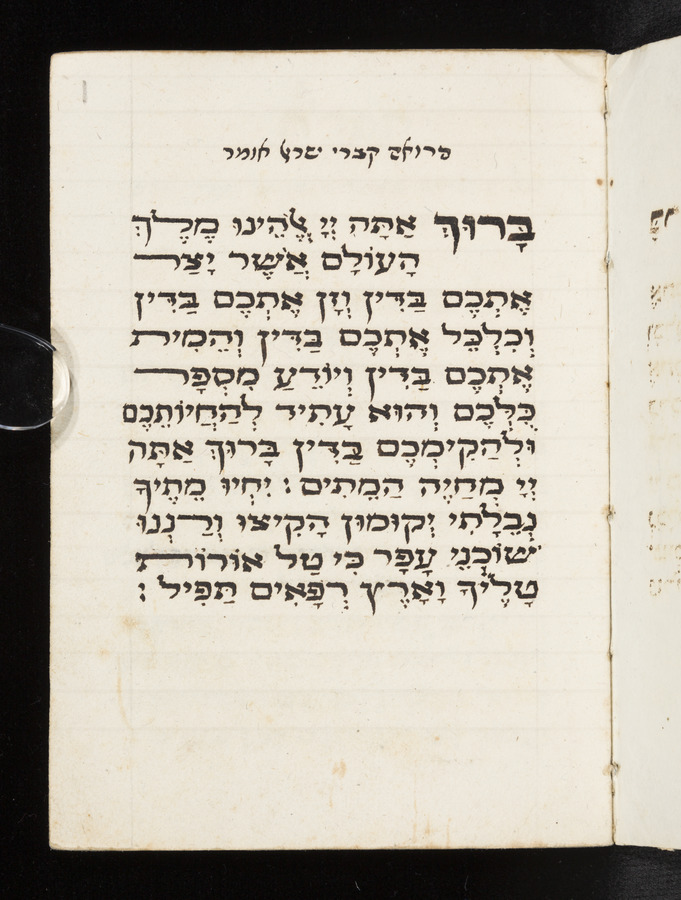 הרואה קברי ישראל אומר
בָּרוּךְ אַתָּה יְיָ אֱלֹהֵינוּ מֶלֶךְ
הָעוֹלָם אֲשֶׁר יָצַר
אֶתְכֶם בַּדִּין וְזָן אֶתְכֶם בַּדִּין
וְכִלְכֵּל אֶתְכֶם בַּדִּין וְהֵמִית
אֶתְכֶם בַּדִּין וְיוֹדֵעַ מִסְפַּר
כֻּלְּכֶם וְהוּא עָתִיד לְהַחֲיוֹתְכֶם
וּלְהַקִימְכֶם בַּדִּין בָּרוּךְ אַתָּה
יְיָ מְחַיֶה הַמֵתִים : יִחְיוּ מֵתֶיךָ
נְבֵלָתִי יְקוּמוּן הָקִיצוּ וְרַנְנוּ
שׁוֹכְנֵי עָפָר כִּי טַל אוֹרוֹת
טָלֶיךָ וָאָרֶץ רְפָאִים תַּפִּיל :